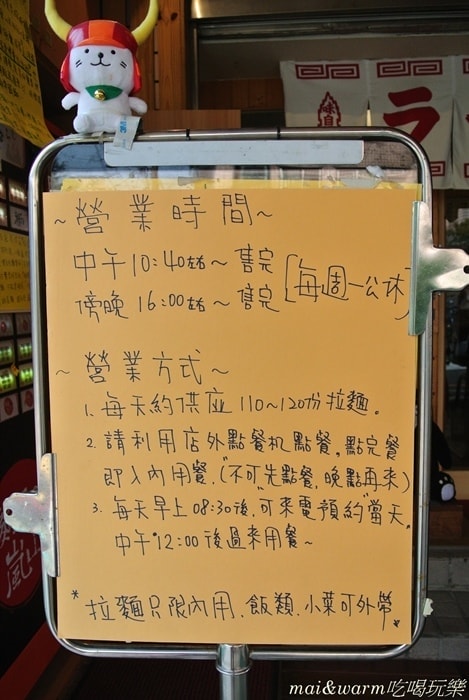 ~營業時間~
中午10:40左右~售完
傍晚16:00左右~售完
[每週一公休]
~營業方式~
1. 每天約供应110~120份拉麵。
2. 請利用店外點餐机點餐,點完餐
即入內用餐.(不可"先點餐,晚點再來)
3. 每天早上08:30後,可來電預約"當天"
中午"12:00後過來用餐~
*拉麵只限內用.飯類.小菜可外帶*
味自
ラ
嵐
mai&warm吃喝玩樂